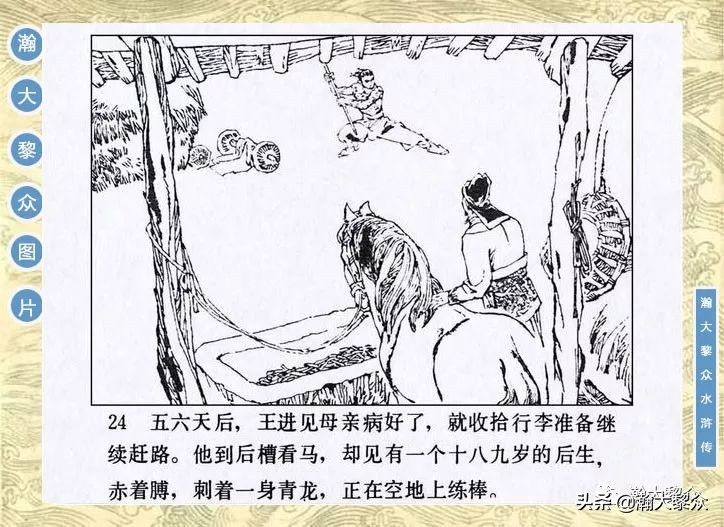 瀚
大
黎
众
图
片
瀚大黎众水浒传
24 五六天后，王进见母亲病好了，就收拾行李准备继
续赶路。他到后槽看马，却见有一个十八九岁的后生，
赤着膊，刺着一身青龙，正在空地上练棒。
头条 @瀚大黎众